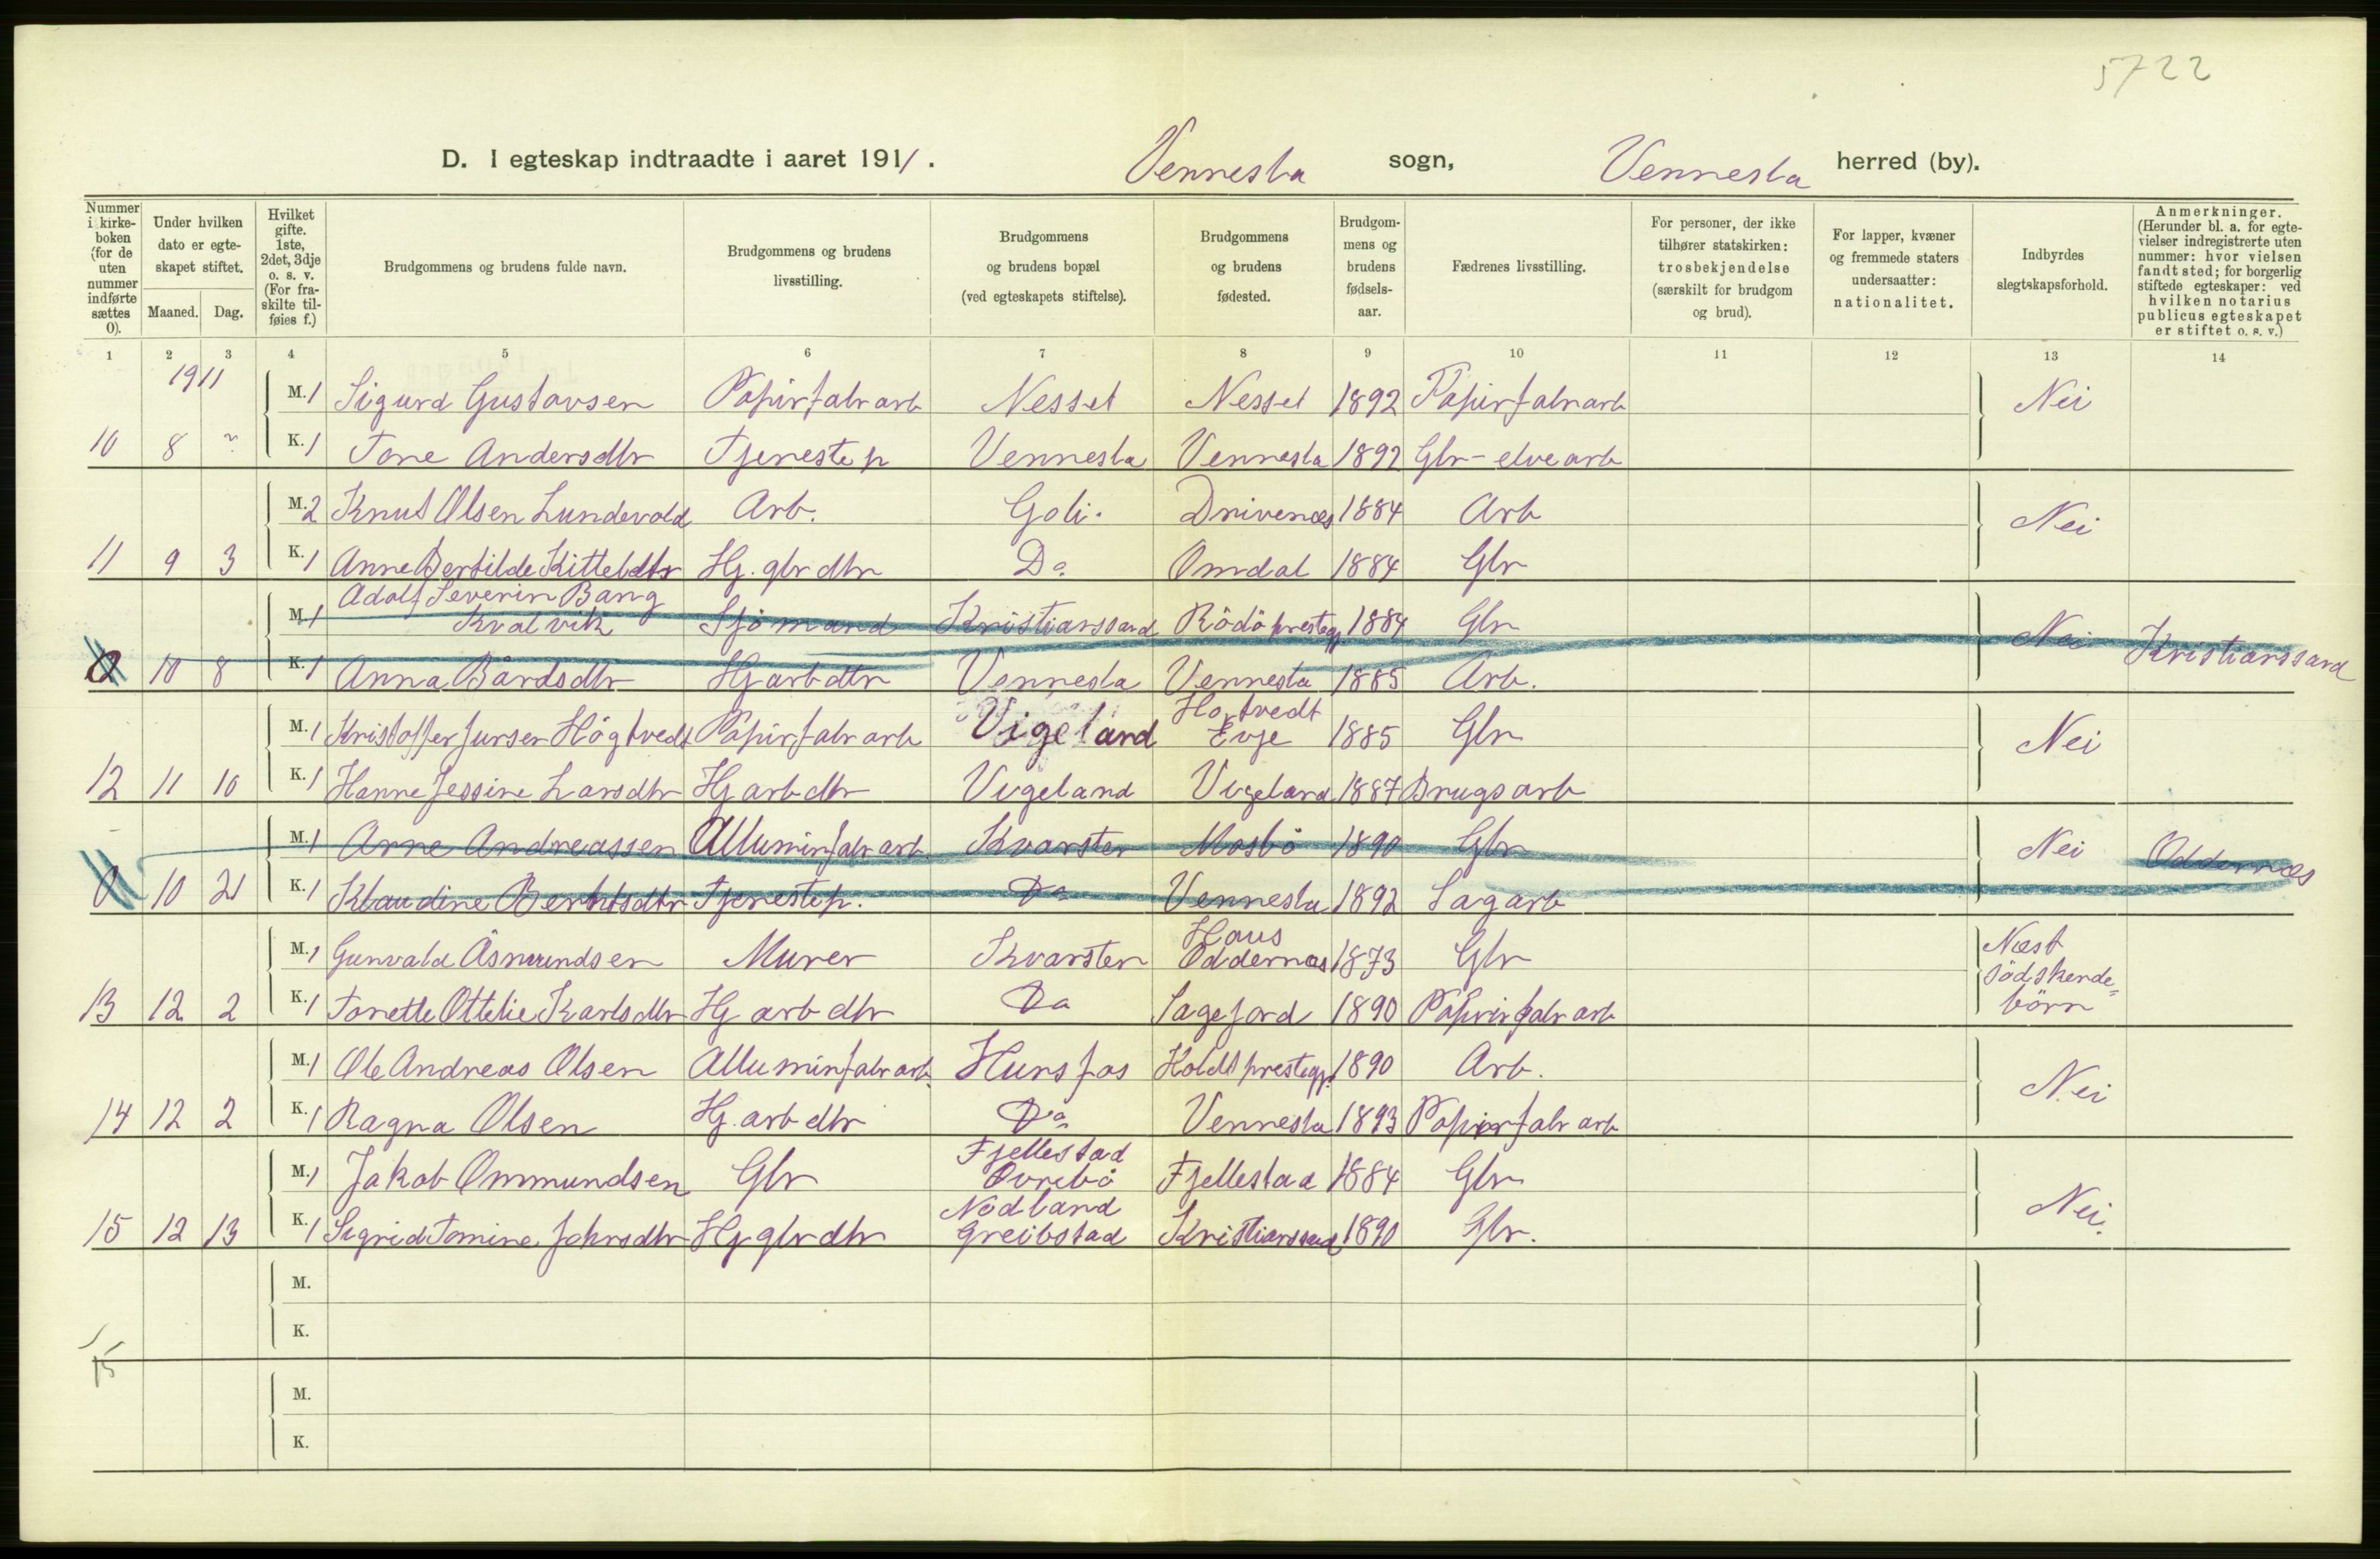 5722
D. I egteskap indtraadte i aaret 1911. Vennesla sogn, Vennesla herred (by).
Nummer i kirke-boken (for de uten nummer indførte sættes 0).
Under hvilken dato er egte-skapet stiftet. Maaned. Dag.
Hvilket gifte. 1ste, 2det, 3dje o. s. v. (For fra-skilte til-føies f.)
Brudgommens og brudens fulde navn.
Brudgommens og brudens livsstilling.
Brudgommens og brudens bopæl (ved egteskapets stiftelse).
Brudgommens og brudens fødested.
Brudgom-mens og brudens fødsels-aar.
Fædrenes livsstilling.
For personer, der ikke tilhører statskirken: trosbekjendelse (særskilt for brudgom og brud).
For lapper, kvæner og fremmede staters undersaatter: nationalitet.
Indbyrdes slegtskapsforhold.
Anmerkninger. (Herunder bl. a. for egte-vielser indregistrerte uten nummer: hvor vielsen fandt sted; for borgerlig stiftede egteskaper: ved hvilken notarius publicus egteskapet er stiftet o. s. v.)
1 2 3 4 5 6 7 8 9 10 11 12 13 14
1911
M. 1 Sigurd Gustavsen Papirfabrarb Nesset Nesset 1892 Papirfabrarb Nei
10 8 K. 1 Tone Andersdtr Tjenestep Vennesla Vennesla 1892 Gbr - elvearb
M. 2 Knut Olsen Lundevold Arb. Goli. Drivenæs 1884 Arb Nei
11 9 3 K. 1 Anne Bertilde Kitteldtr Hj. gbr dtr Do Omdal 1884 Gbr
Adolf Severin Bang
M. 1 Kvalvik Sjömand Kristianssand Rödö prestegj 1884 Gbr Nei Kristianssand
0 10 8 K. 1 Anna Bårdsdtr Hj arb dtr Vennesla Vennesla 1885 Arb.
Hortvedt
M. 1 Kristoffer Jursen Högtvedt Papirfabr arb Vigeland Evje 1885 Gbr Nei
12 11 10 K. 1 Hanne Jessine Larsdtr Hj arb dtr Vigeland Vigeland 1887 Brugsarb
M. 1 Arne Andreassen Alluminfabr arb Kvarsten Mosbö 1890 Gbr Nei Oddernæs
0 10 21 K. 1 Klaudine Berntsdtr Tjenestep. Do Vennesla 1892 Sagarb
Haus Næst
M. 1 Gunvald Åsmundsen Murer Kvarsten Oddernæs 1873 Gbr södskende=
13 12 2 K. 1 Torette Ottelie Karlsdtr Hj arb dtr Do Sagejord 1890 Papirfabr arb börn
M. 1 Ole Andreas Olsen Alluminfabr arb. Hunsfos Holdt prestegj. 1890 Arb. Nei
14 12 2 K. 1 Ragna Olsen Hj. arb dtr Do Vennesla 1893 Papirfabr arb
Fjellestad
M. 1 Jakob Ommundsen Gbr Övrebö Fjellestad 1884 Gbr Nei.
Nodland
15 12 13 K. 1 Sigrid Tomine Johnsdtr Hj gbr dtr Greibstad Kristianssand 1890 Gbr.
M.
K.
15
M.
K.